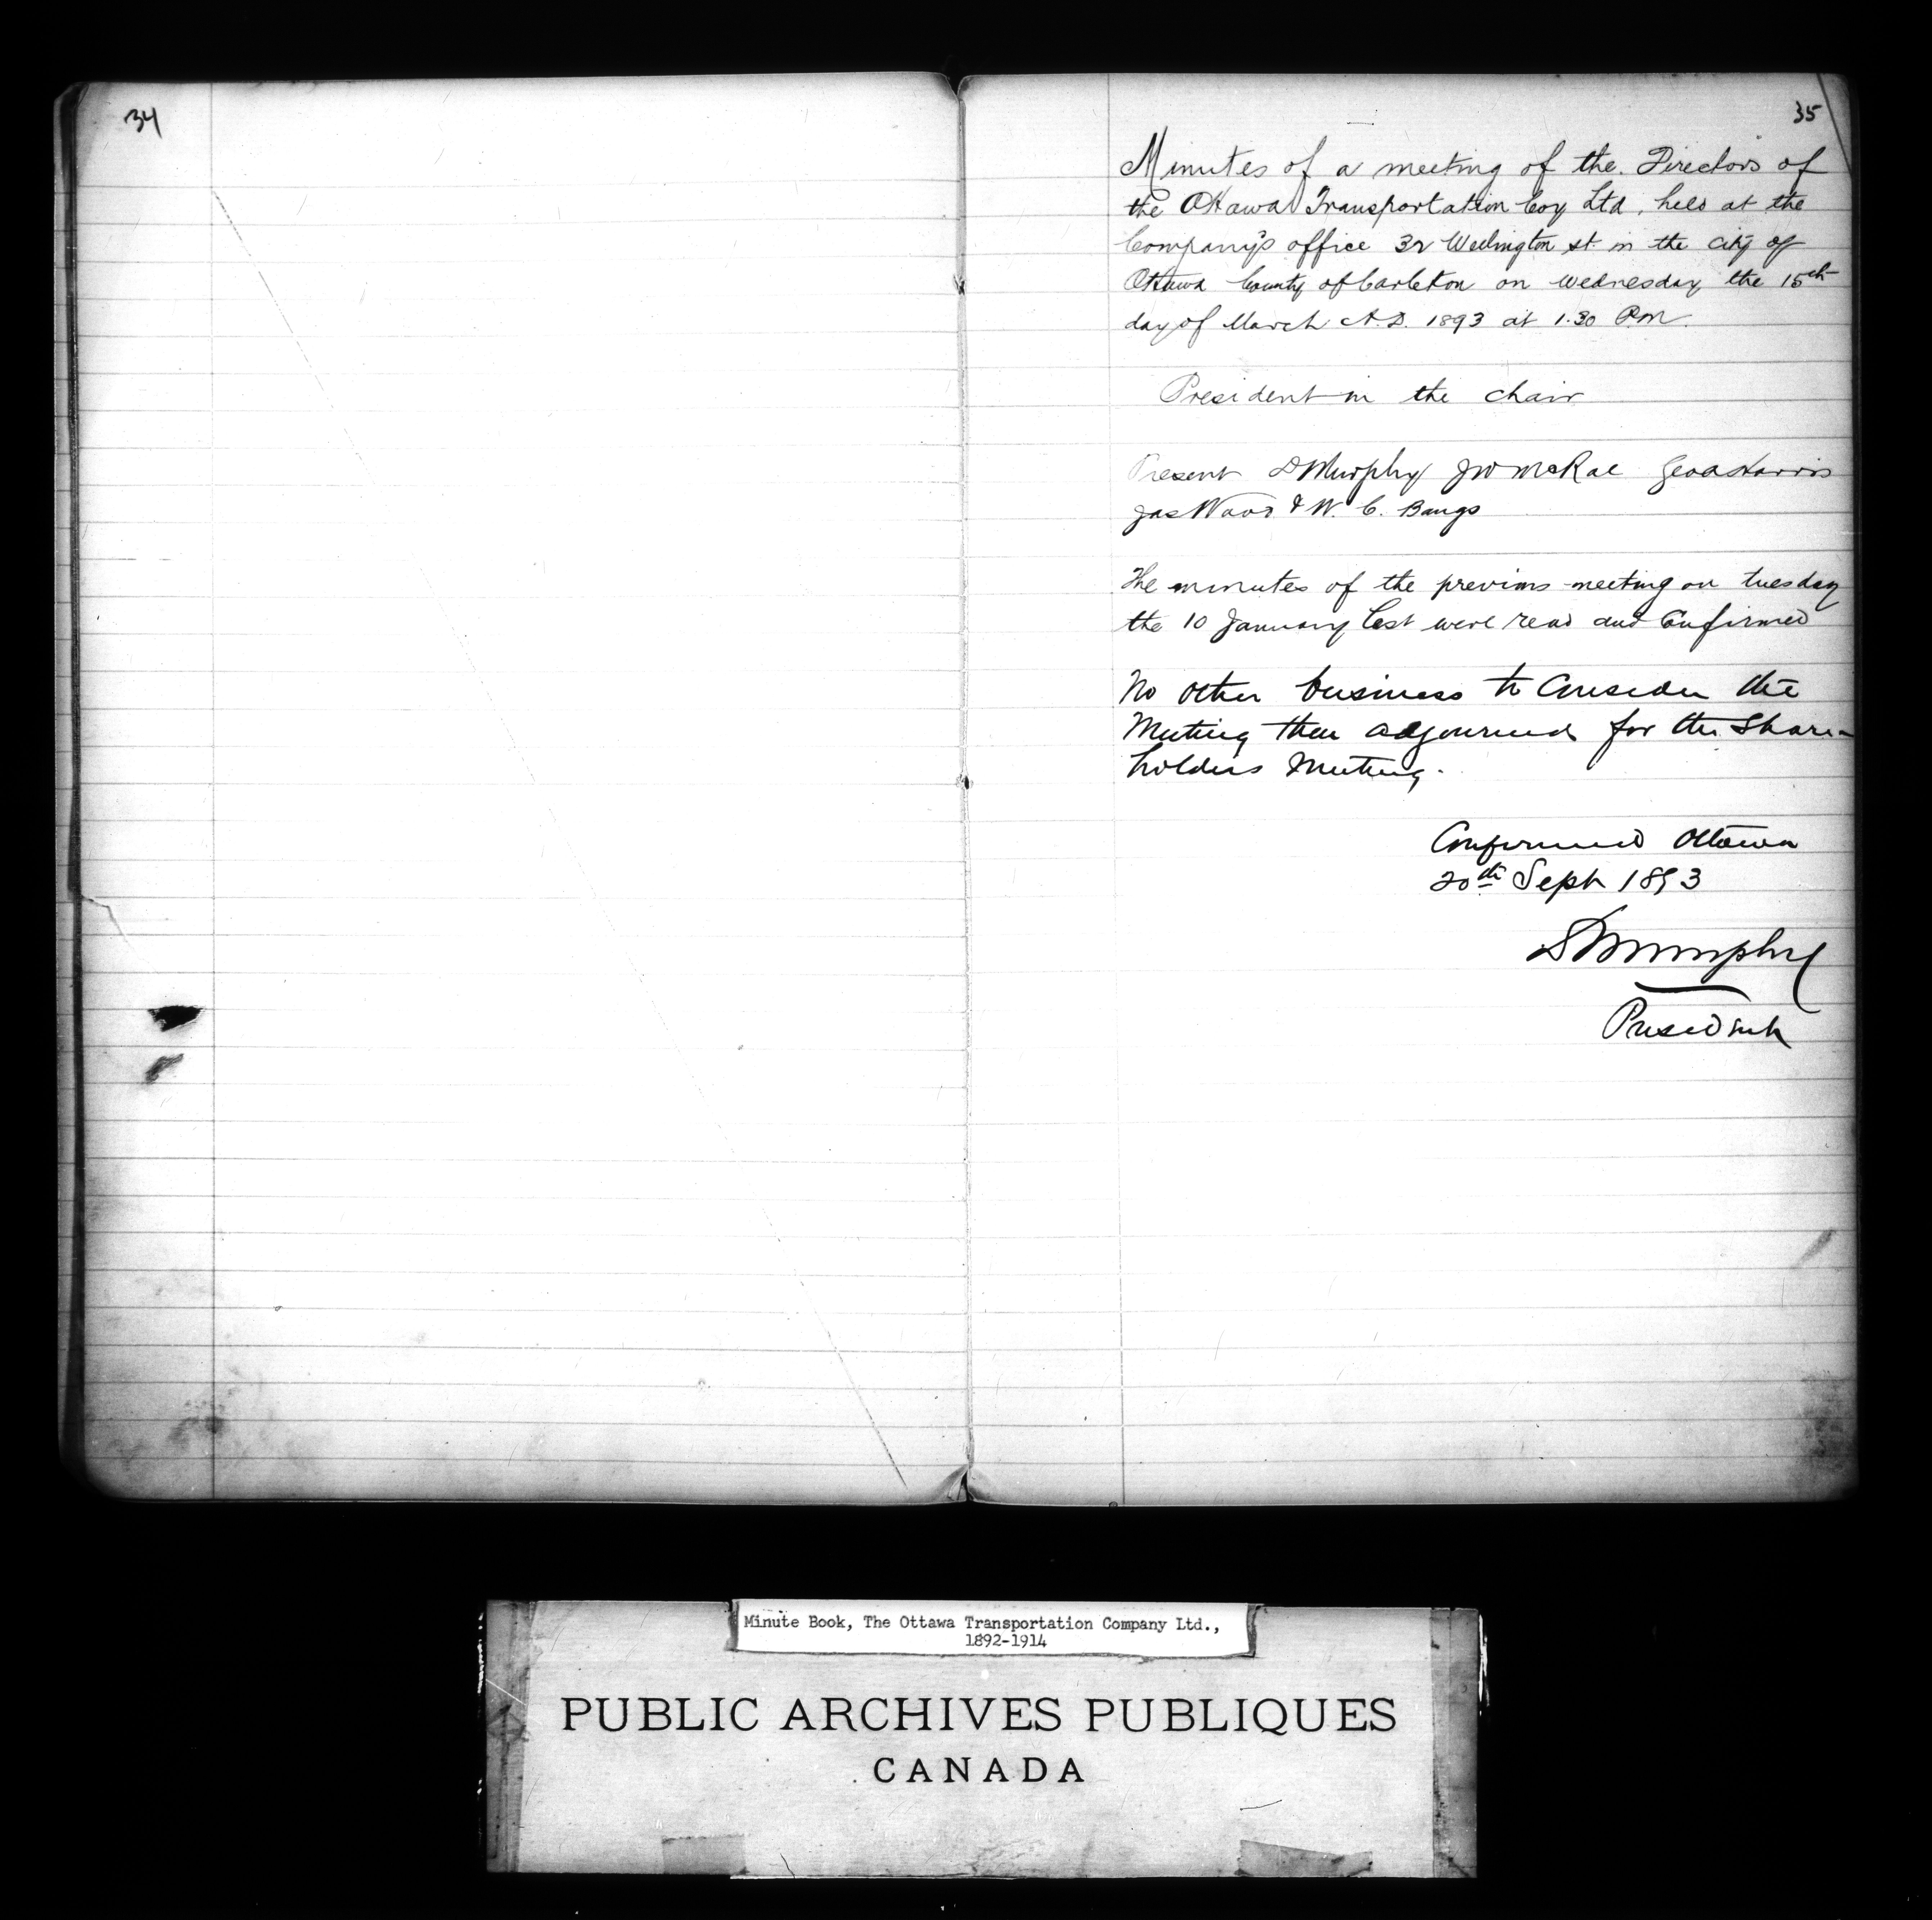 34
35
Minutes of a meeting of the Directors of
the Ottawa Transportation Coy Ltd, held at the
Company's office 32 Wellington st in the city of
Ottawa County of Carleton on wednesday the 15th
day of March A.D. 1893 at 1.30 P.M.
President in the chair
Present D Murphy JW McRae Geo A Harris
Jas Wood & W. C. Bangs
The minutes of the previous meeting on tuesday
the 10 January last were read and Confirmed
No other business to Consider the
Meeting then adjourned for the Share-
holders Meeting.
Confirmed Ottawa
20th Sept 1893
D Murphy
President
Minute Book, The Ottawa Transportation Company Ltd.,
1892-1914
PUBLIC ARCHIVES PUBLIQUES
CANADA